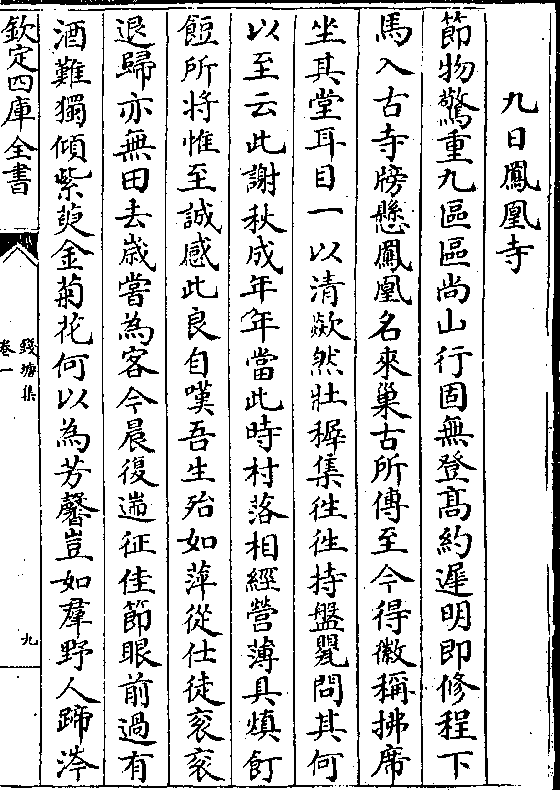 九日鳳凰寺
節物驚重九區區尚山行固無登髙約遲明即修程下
馬入古寺牓懸鳳凰名來巢古所傳至今得徽稱拂席
坐其堂耳目一以清歘然壯穉集徃徃持盤甖問其何
以至云此謝秋成年年當此時村落相經營薄具慎飣
餖所将惟至誠感此良自嘆吾生殆如萍從仕徒衮衮
退歸亦無田去歳嘗為客今晨復遄征佳節眼前過有
酒難獨傾紫萸金菊花何以為芳馨豈如羣野人蹄涔
欽定四庫全書
錢塘集
卷一
九